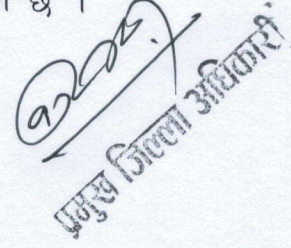 छ ।
प्रमुख जिल्ला अधिकारी